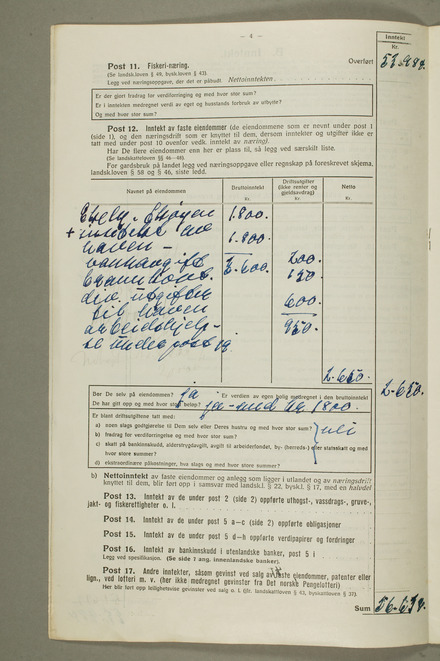 — 4 —
Inntekt
Kr.
Post 11. Fiskeri-næring.
Overført
(Se landsk.loven § 49, bysk.loven § 43).
Legg ved næringsoppgave, der det er påbudt. Nettoinntekten.
Er der gjort fradrag for verdiforringing og med hvor stor sum?
Er i inntekten medregnet verdi av eget og husstands forbruk av utbytte?
Og med hvor stor sum?
Post 12. Inntekt av faste eiendommer (de eiendommene som er nevnt under post 1
(side 1), og den næringsdrift som er knyttet til dem, dersom inntekter og utgifter ikke er
tatt med under post 10 ovenfor vedk. inntekt av næring).
Har De flere eiendommer enn her er plass til, så legg ved særskilt liste.
(Se landskatteloven §§ 46—48).
For gardsbruk på landet legg ved næringsoppgave eller regnskap på foreskrevet skjema,
landsk.loven § 58 og § 46, siste ledd.
Navnet på eiendommen
Bruttoinntekt
Kr.
Driftsutgifter
(ikke renter og
gjeldsavdrag)
Kr.
Netto
Kr.
1.800.
+
1.800.
haven —
200.
3.600.
150
div. utgifter
til haven 600.
arbeidshjelp
950.
se under post 19
2.650.
Bor De selv på eiendommen? ja Er verdien av egen bolig medregnet i den bruttoinntekt
De har gitt opp og med hvor stor beløp? ja - med kr 1800.
Er blant driftsutgiftene tatt med:
a) noen slags godtgjørelse til Dem selv eller Deres hustru og med hvor stor sum?
b) fradrag for verdiforringelse og med hvor stor sum?
c) skatt på bankinnskudd, alderstrygdavgift, avgift til arbeiderfondet, by- (herreds-) eller statsskatt og med
hvor store summer?
d) ekstraordinære påkostninger, hva slags og med hvor store summer?
2.650.
b) Nettoinntekt av faste eiendommer og anlegg som ligger i utlandet og av næringsdrift
knyttet til dem, blir ført opp i samsvar med landsk.l. § 22, bysk.l. § 17, med en halvdel
Post 13. Inntekt av de under post 2 (side 2) oppførte uthogst-, vassdrags-, gruve-,
jakt- og fiskerettigheter o. l.
Post 14. Inntekt av de under post 5 a—c (side 2) oppførte obligasjoner
Post 15. Inntekt av de under post 5 d—h oppførte verdipapirer og fordringer
Post 16. Inntekt av bankinnskudd i utenlandske banker, post 5 i
Legg ved spesifikasjon. (Se side 7 ang. innenlandske banker).
Post 17. Andre inntekter, såsom gevinst ved salg av faste eiendommer, patenter eller
lign., ved lotteri m. v. (her ikke medregnet gevinster fra Det norske Pengelotteri)
Her blir ført opp leilighetsvise gevinster ved salg o. l. (jfr. landskatteloven § 43, byskatteloven § 37).
Sum